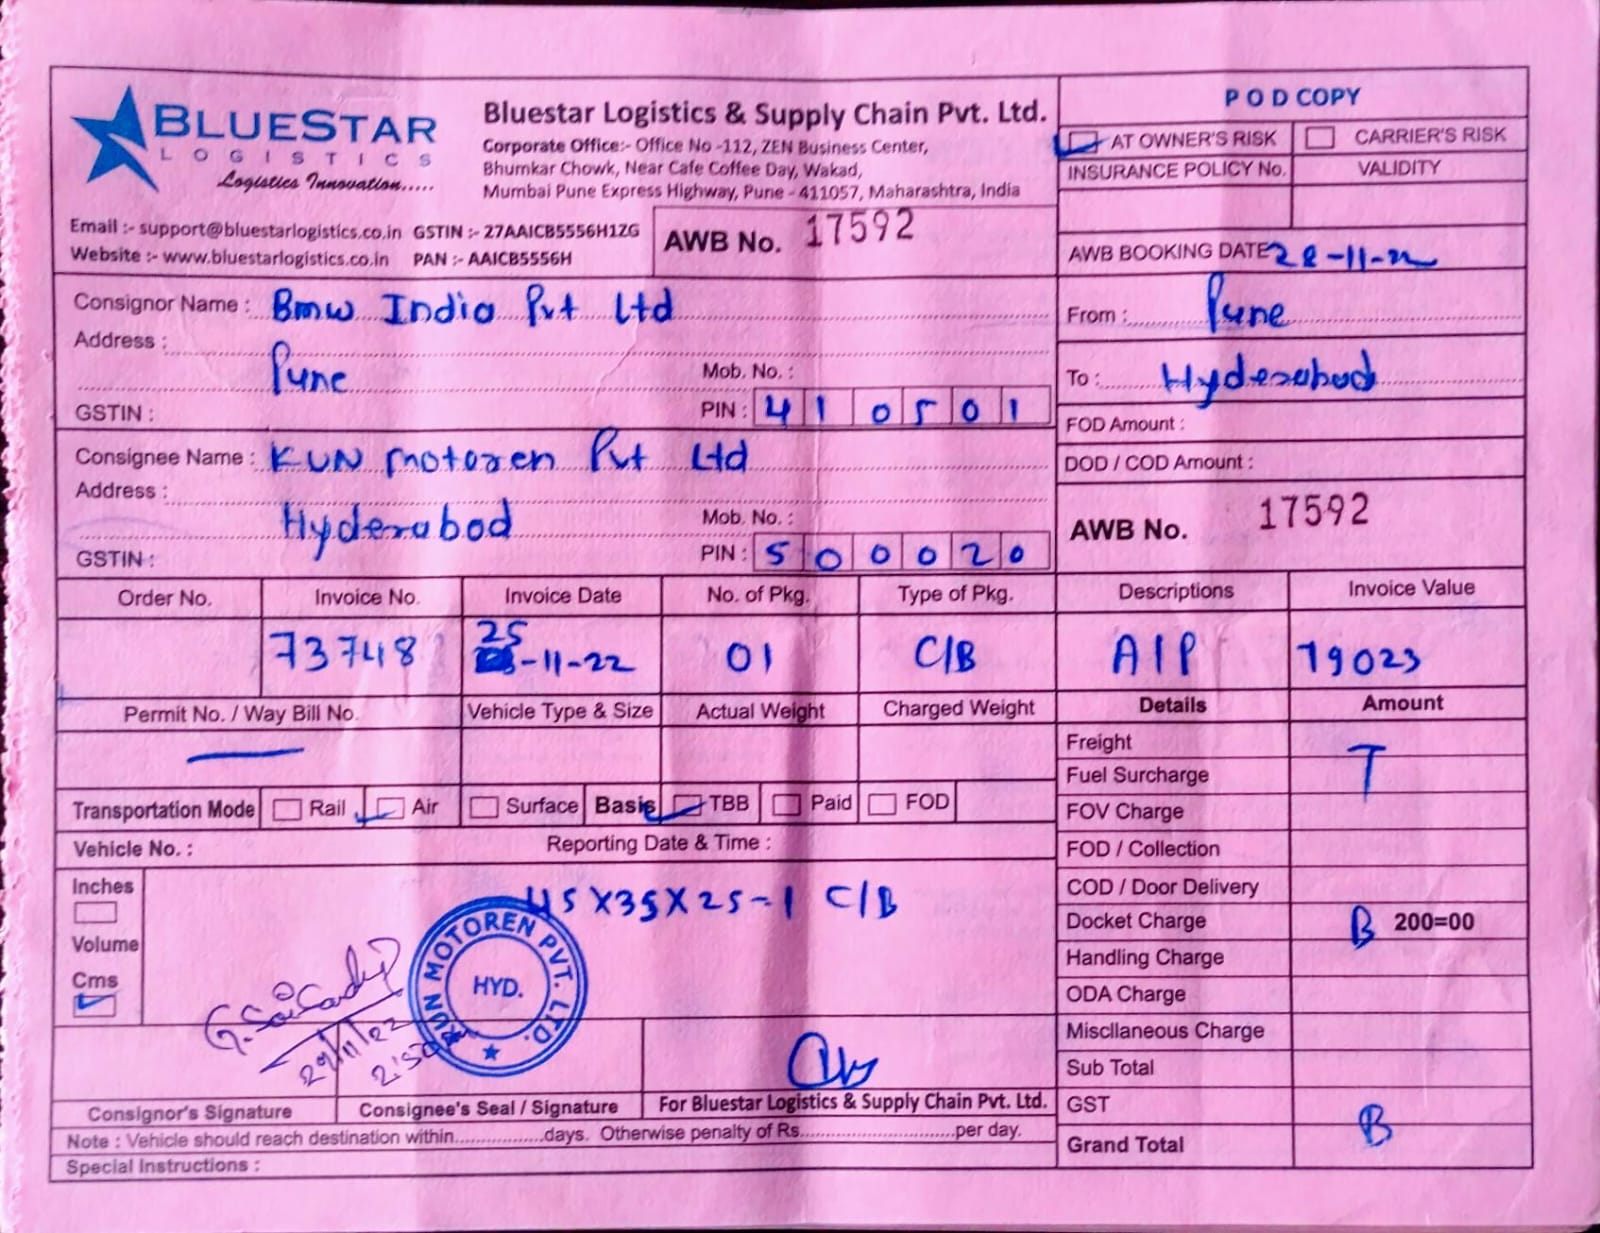 BLUESTAR
LOGISTICS
Logistics Innovation.....
Bluestar Logistics & Supply Chain Pvt. Ltd.
Corporate Office:- Office No -112, ZEN Business Center,
Bhumkar Chowk, Near Cafe Coffee Day, Wakad,
Mumbai Pune Express Highway, Pune - 411057, Maharashtra, India
Email :- support@bluestarlogistics.co.in GSTIN :- 27AAICB5556H1ZG
Website :- www.bluestarlogistics.co.in PAN :- AAICB5556H
AWB No. 17592
P O D COPY
AT OWNER'S RISK CARRIER'S RISK
INSURANCE POLICY No. VALIDITY
AWB BOOKING DATE 28-11-22
Consignor Name : Bmw India Pvt Ltd
Address :
Pune
Mob. No. :
GSTIN :
PIN : 410501
From : Pune
To : Hyderabad
FOD Amount :
DOD / COD Amount :
Consignee Name : KUN Motoren Pvt Ltd
Address :
Hyderabad
Mob. No. :
GSTIN :
PIN : 500020
AWB No. 17592
Order No. Invoice No. Invoice Date No. of Pkg. Type of Pkg. Descriptions Invoice Value
25
73748 -11-22 01 C/B A/P 79023
Permit No. / Way Bill No. Vehicle Type & Size Actual Weight Charged Weight Details Amount
Freight
T
Fuel Surcharge
Transportation Mode Rail Air Surface Basis TBB Paid FOD
FOV Charge
Vehicle No. : Reporting Date & Time :
FOD / Collection
Inches
45X35X25-1 C/B
COD / Door Delivery
Docket Charge B 200=00
Volume
Handling Charge
Cms
ODA Charge
KUN MOTOREN PVT. LTD.
HYD.
29/11/22
Miscllaneous Charge
Sub Total
Consignor's Signature Consignee's Seal / Signature For Bluestar Logistics & Supply Chain Pvt. Ltd.
GST
B
Grand Total
Note : Vehicle should reach destination within..................days. Otherwise penalty of Rs..............................per day.
Special Instructions :